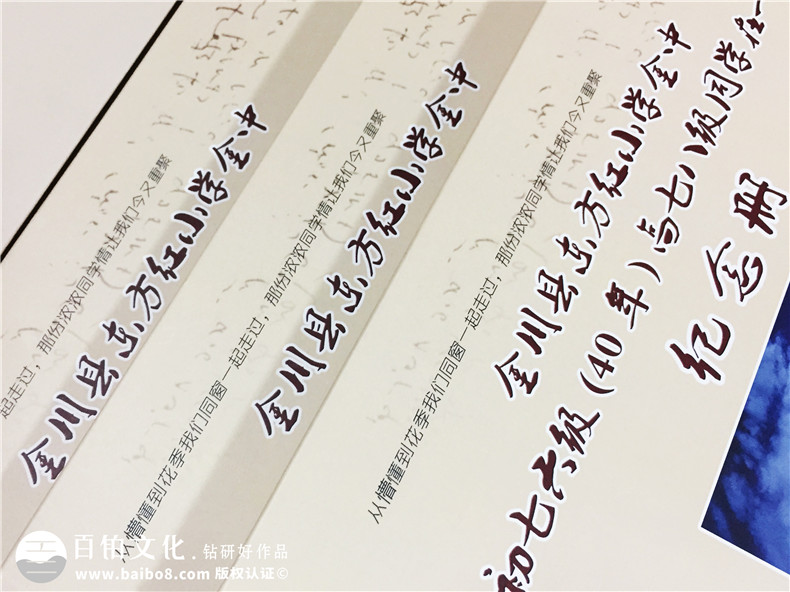 起走过，那份浓浓同学情让我们今又重聚
金川县东方红小学金中
从懵懂到花季我们同窗一起走过，那份浓浓同学情让我们今又重聚
金川县东方红小学金中
从懵懂到花季我们同窗一起走过，那份浓浓同学情让我们今又重聚
金川县东方红小学金中
初七六级(40年)高七八级同学
纪念册
百铂文化·钻研好作品
www.baibo8.com 版权认证©